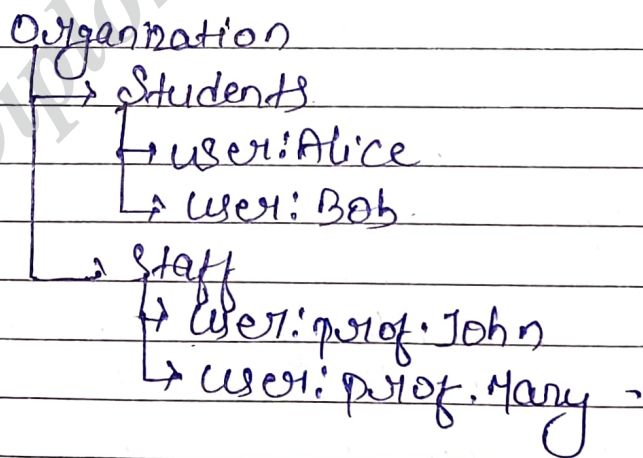 Organization
→ Students
→ user: Alice
→ user: Bob
→ Staff
→ user: prof. John
→ user: prof. Mary